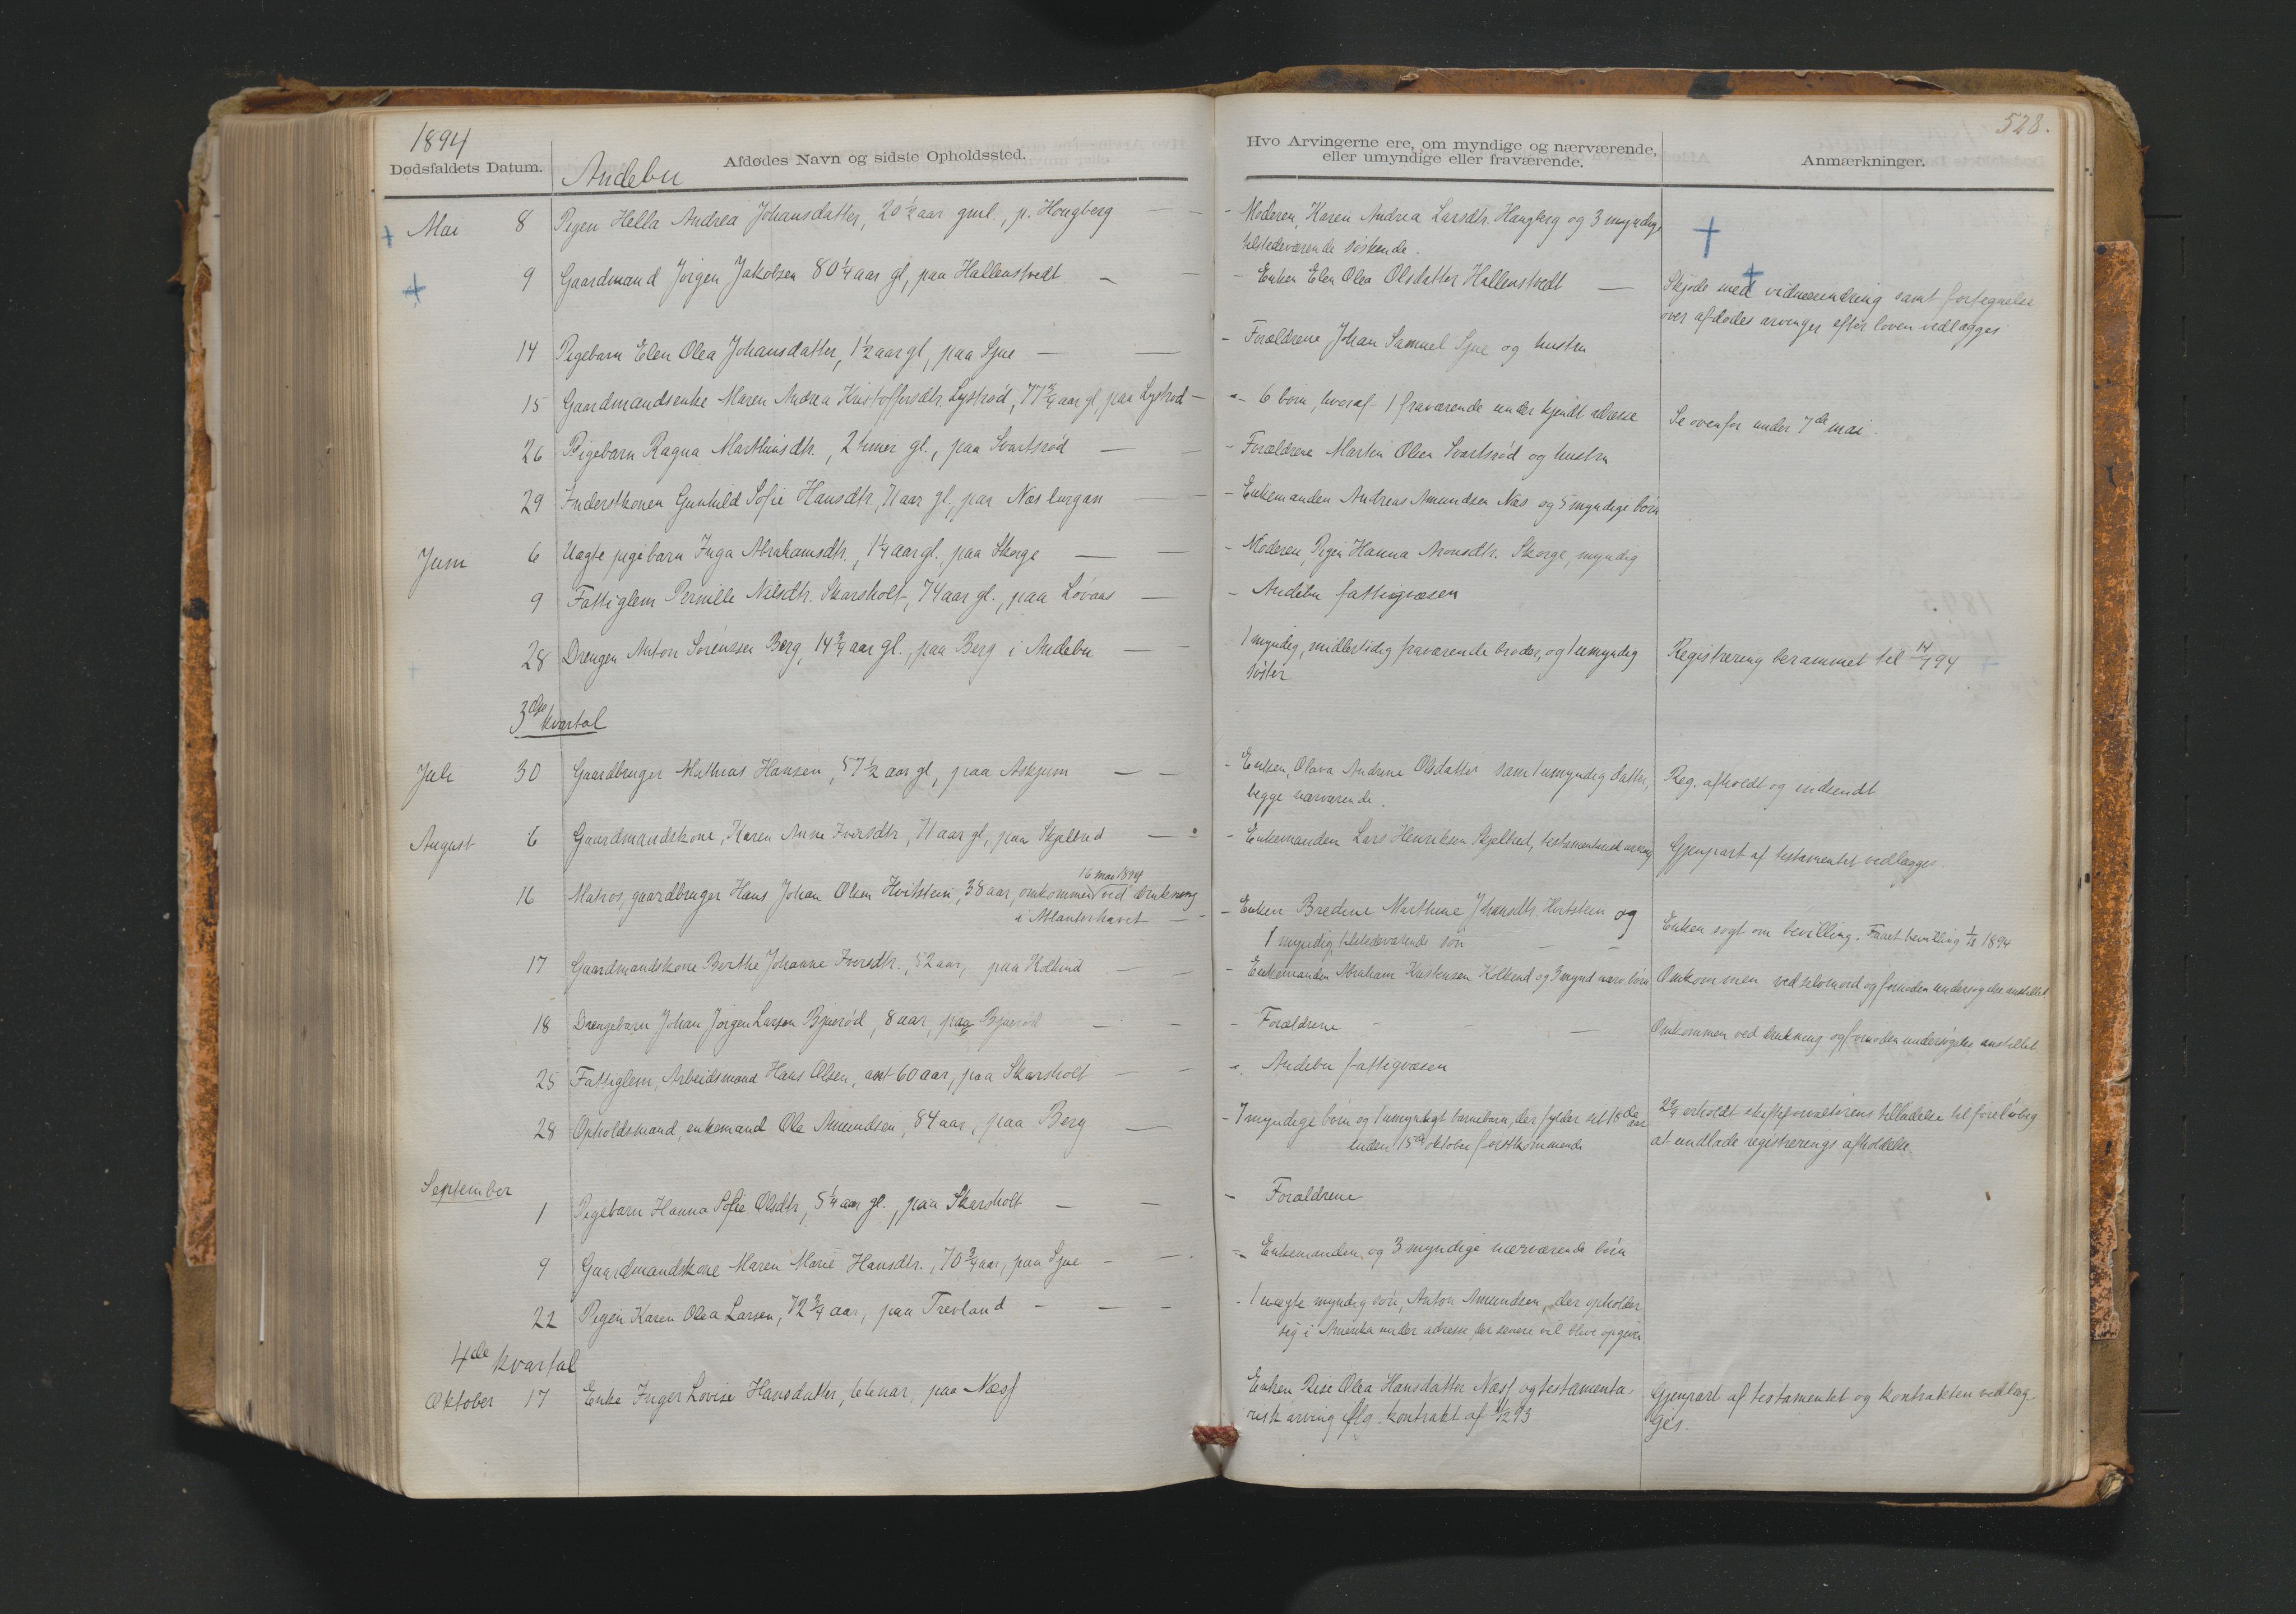 1894
528.
Dødsfaldets Datum.
Andebu
Afdødes Navn og sidste Opholdssted.
Hvo Arvingerne ere, om myndige og nærværende,
eller umyndige eller fraværende.
Anmærkninger.
Mai 8 Pigen Hella Andrea Johansdatter, 20 ½ aar gml., p. Hougberg — - Moderen, Karen Andrea Larsdtr. Haugberg og 3 myndige
tilstedeværende söskende.
9 Gaardmand Jörgen Jakobsen 80 ¼ aar gl, paa Hallenstvedt — - Enken Elen Olea Olsdatter Hallenstvedt — Skjöde med vidneerindring samt fortegnelse
over afdödes arvinger efter loven vedlægges
14 Pigebarn Elen Olea Johansdatter, 1 ½ aar gl, paa Sjue — - Forældrene Johan Samuel Sjue og hustru
15 Gaardmandsenke Maren Andrea Kristoffersdtr. Lyströd, 77 ¾ aar gl paa Lyströd - 6 börn, hvoraf 1 fraværende under kjendt adresse Se ovenfor under 7de mai.
26 Pigebarn Ragna Marthinsdtr., 2 timer gl., paa Svartsröd — - Forældrene Martin Olsen Svartsröd og hustru
29 Inderstkonen Gunhild Sofie Hansdtr., 71 aar gl., paa Næs — - Enkemanden Andreas Amundsen Næs og 5 myndige börn
Juni 6 Uægte pigebarn Inga Abrahamsdtr., 1 ¼ aar gl. paa Skorge — - Moderen, Pigen Hanna Aronsdtr. Skorge, myndig
9 Fattiglem Pernille Nilsdtr. Skarsholt, 74 aar gl., paa Lövaas — - Andebu fattigvæsen
28 Drengen Anton Sörenssen Berg, 14 ¾ aar gl., paa Berg i Andebu — 1 myndig, midlertidig fraværende broder, og 1 umyndig Registrering berammet til 14/7 94
söster
3dje kvartal
Juli 30 Gaardbruger Mathias Hansen, 57 ½ aar gl, paa Askjum — - Enken, Olava Andrine Olsdatter samt 1 umyndig datter, Reg. afholdt og indsendt
begge nærværende.
August 6 Gaardmandskone, Karen Anne Iversdtr., 71 aar gl, paa Skjelbred — - Enkemanden Lars Henriksen Skjelbred, testamentarisk arving Gjenpart af testamentet vedlægges.
16 mai 1894
16 Matros, gaardbruger Hans Johan Olsen Hvitstein, 38 aar, omkommen ved drukning
i Atlanterhavet — - Enken Bredine Marthine Johansdtr. Hvitstein og
1 myndig tilstedeværende sön — Enken sögt om bevilling. Faaet bevilling 1894
17 Gaardmandskone Berthe Johanne Iversdtr., 52 aar, paa Kolkind — - Enkemanden Abraham Kristensen Kolkind og 3 mynd nærv. börn Omkommen ved selvmord og fornöden undersögelse anstillet
18 Drengebarn Johan Jörgen Larsen Bjueröd, 8 aar, paa Bjueröd — - Forældrene — Omkommen ved drukning og fornöden undersögelse anstillet
25 Fattiglem, Arbeidsmand Hans Olsen, ant 60 aar, paa Skarsholt — - Andebu fattigvæsen
28 Opholdsmand, enkemand Ole Amundsen, 84 aar, paa Berg — - 7 myndige börn og 1 umyndigt barnebarn, der fylder sit 18de aar 29/9 erholdt skifteforvalterens tilladelse til foreløbig
inden 15de oktober förstkommende at undlade registrerings afholdelse
September
1 Pigebarn Hanna Sofie Olsdtr., 5 ¼ aar gl., paa Skarsholt — - Forældrene
9 Gaardmandskone Maren Marie Hansdtr., 70 ¾ aar, paa Sjue — - Enkemanden og 3 myndige nærværende börn
22 Pigen Karen Olea Larsen, 72 ¾ aar, paa Trevland — - 1 uægte myndig sön, Anton Amundsen, der opholder
sig i Amerika under adresse der senere vil blive opgivet
4de kvartal
Oktober 17 Enke Inger Lovise Hansdatter, aar, paa Næss Enken Olea Hansdatter Næss og testamenta-
risk arving ifølg. kontrakt af 93
Gjenpart af testamentet og kontrakten vedlæg-
ges.